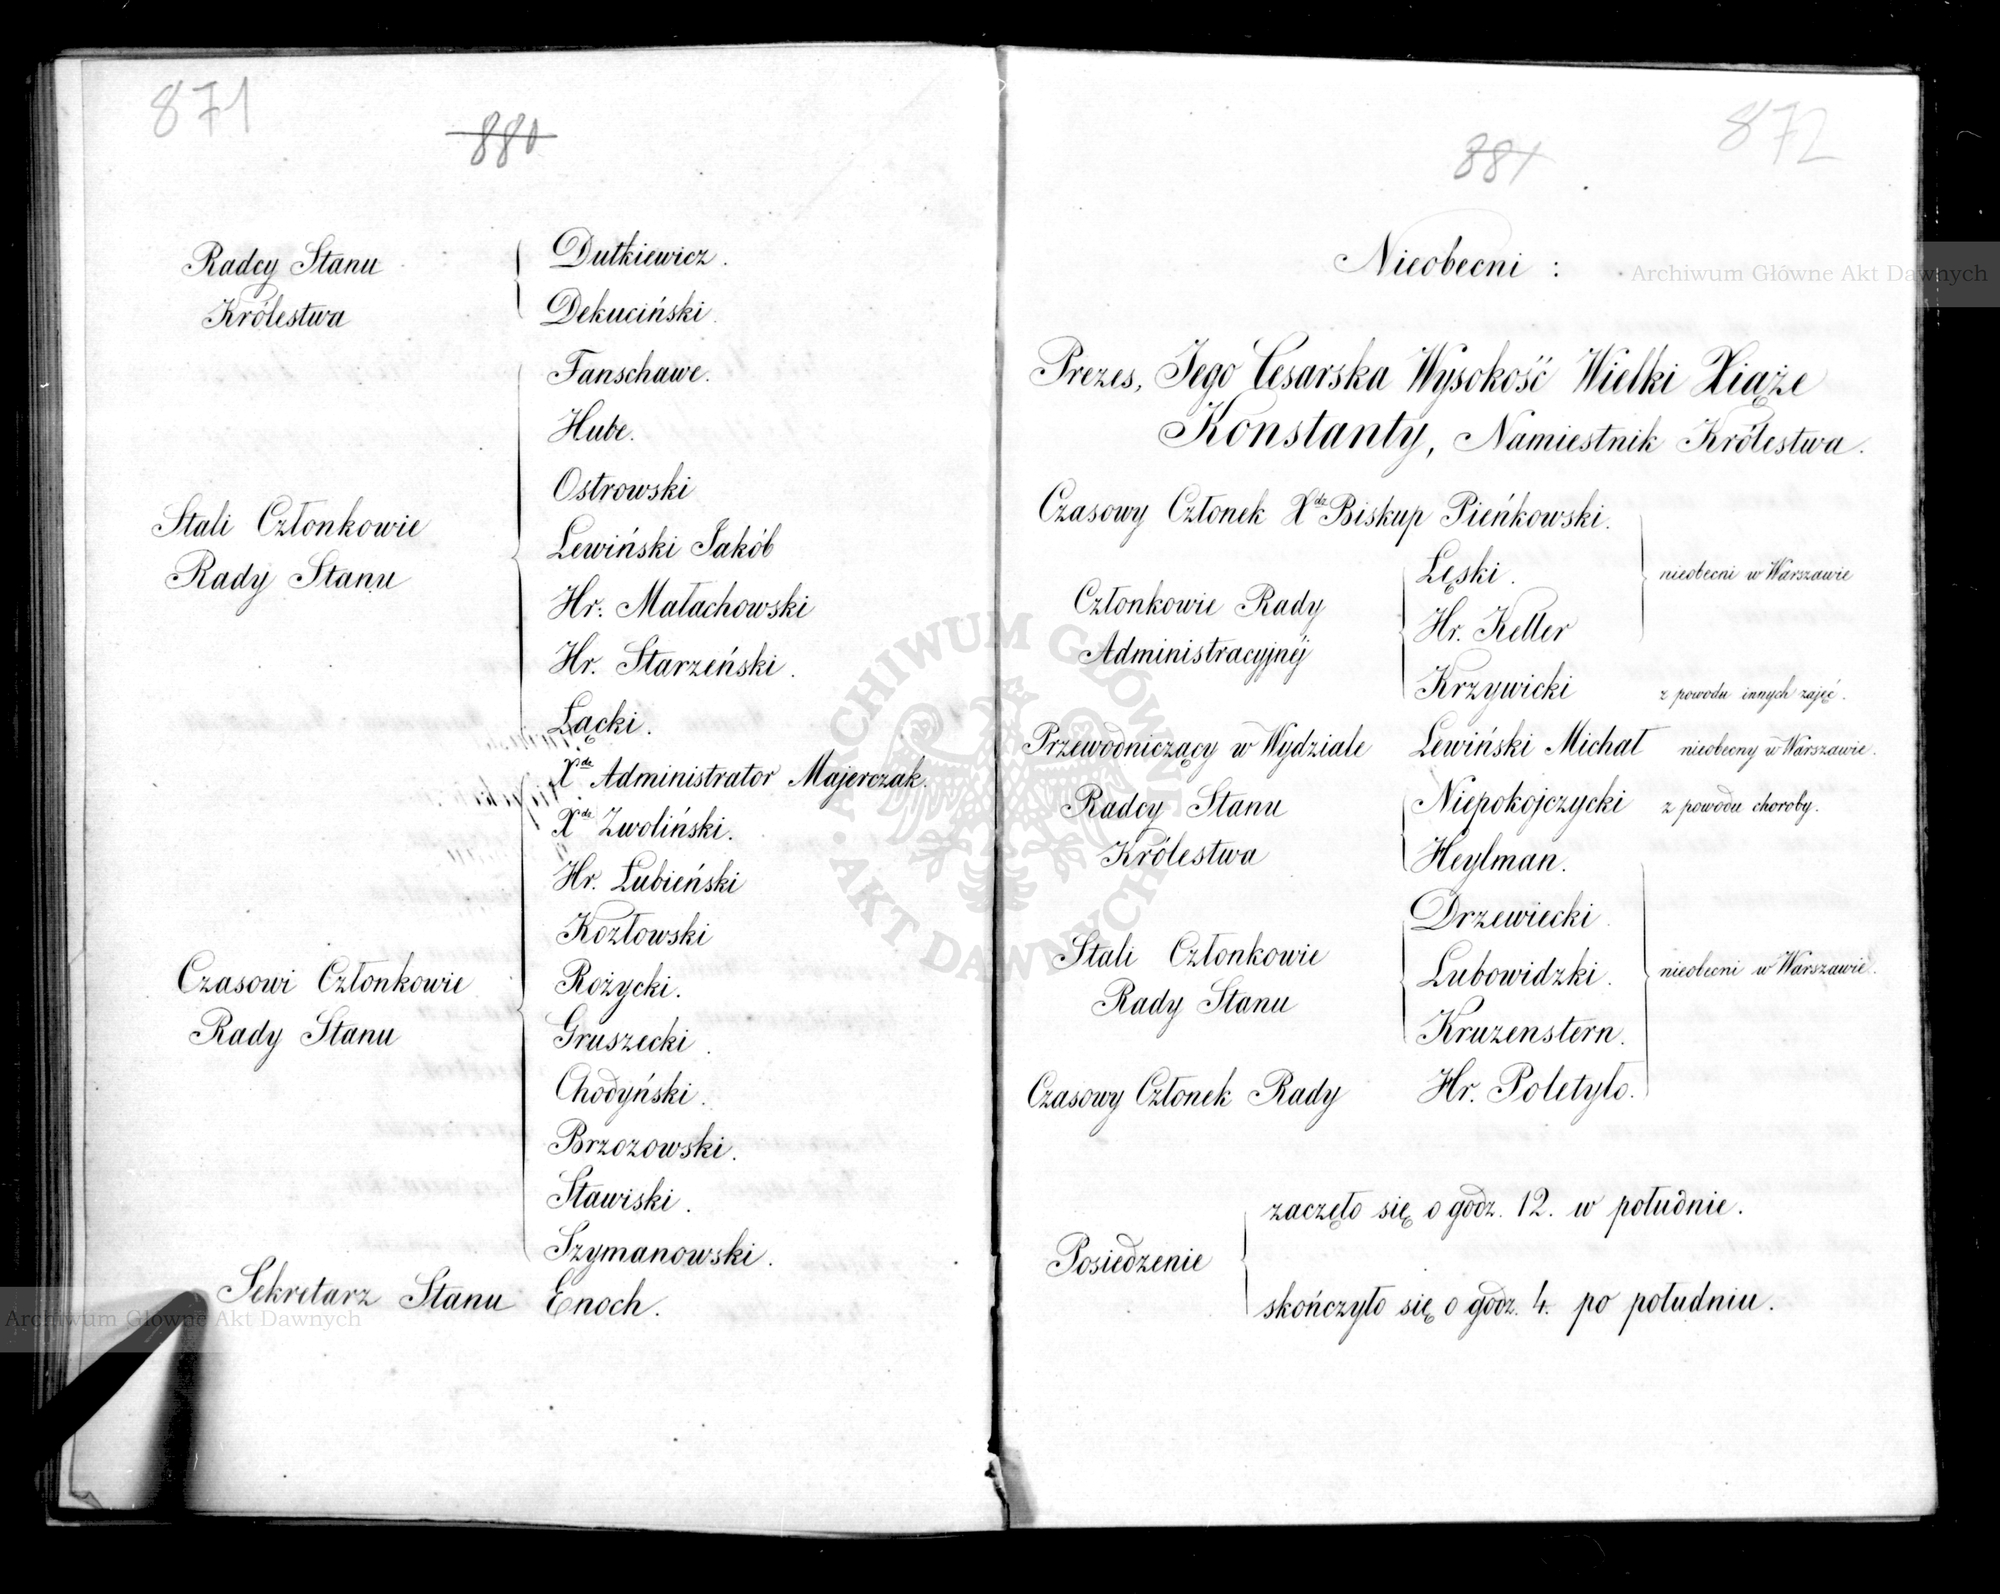 871
880
Radcy Stanu
Królestwa
Dutkiewicz.
Dekuciński.
Stali Członkowie
Rady Stanu
Fanschawe.
Hube.
Ostrowski
Lewiński Jakób
Hr. Małachowski
Hr. Starzeński.
Łącki.
Czasowi Członkowie
Rady Stanu
Xdz Administrator Majerczak.
Xdz Zwoliński.
Hr. Łubieński
Kozłowski
Rożycki.
Gruszecki.
Chodyński.
Brzozowski.
Stawiski.
Szymanowski.
Sekretarz Stanu Enoch.
872
881
Nieobecni :
Prezes, Jego Cesarska Wysokość Wielki Xiąże
Konstanty, Namiestnik Królestwa.
Czasowy Członek Xdz Biskup Pieńkowski.
Członkowie Rady
Administracyjnéj
Łęski.
Hr. Keller
nieobecni w Warszawie
Krzywicki z powodu innych zajęć.
Przewodniczący w Wydziale Lewiński Michał nieobecny w Warszawie.
Radcy Stanu
Królestwa
Niepokojczycki z powodu choroby.
Heylman.
Stali Członkowie
Rady Stanu
Drzewiecki.
Lubowidzki.
Kruzenstern.
nieobecni w Warszawie.
Czasowy Członek Rady Hr. Poletyło.
Posiedzenie
zaczęło się o godz. 12. w południe.
skończyło się o godz. 4. po południu.
Archiwum Główne Akt Dawnych
Archiwum Główne Akt Dawnych
ARCHIWUM GŁÓWNE AKT DAWNYCH